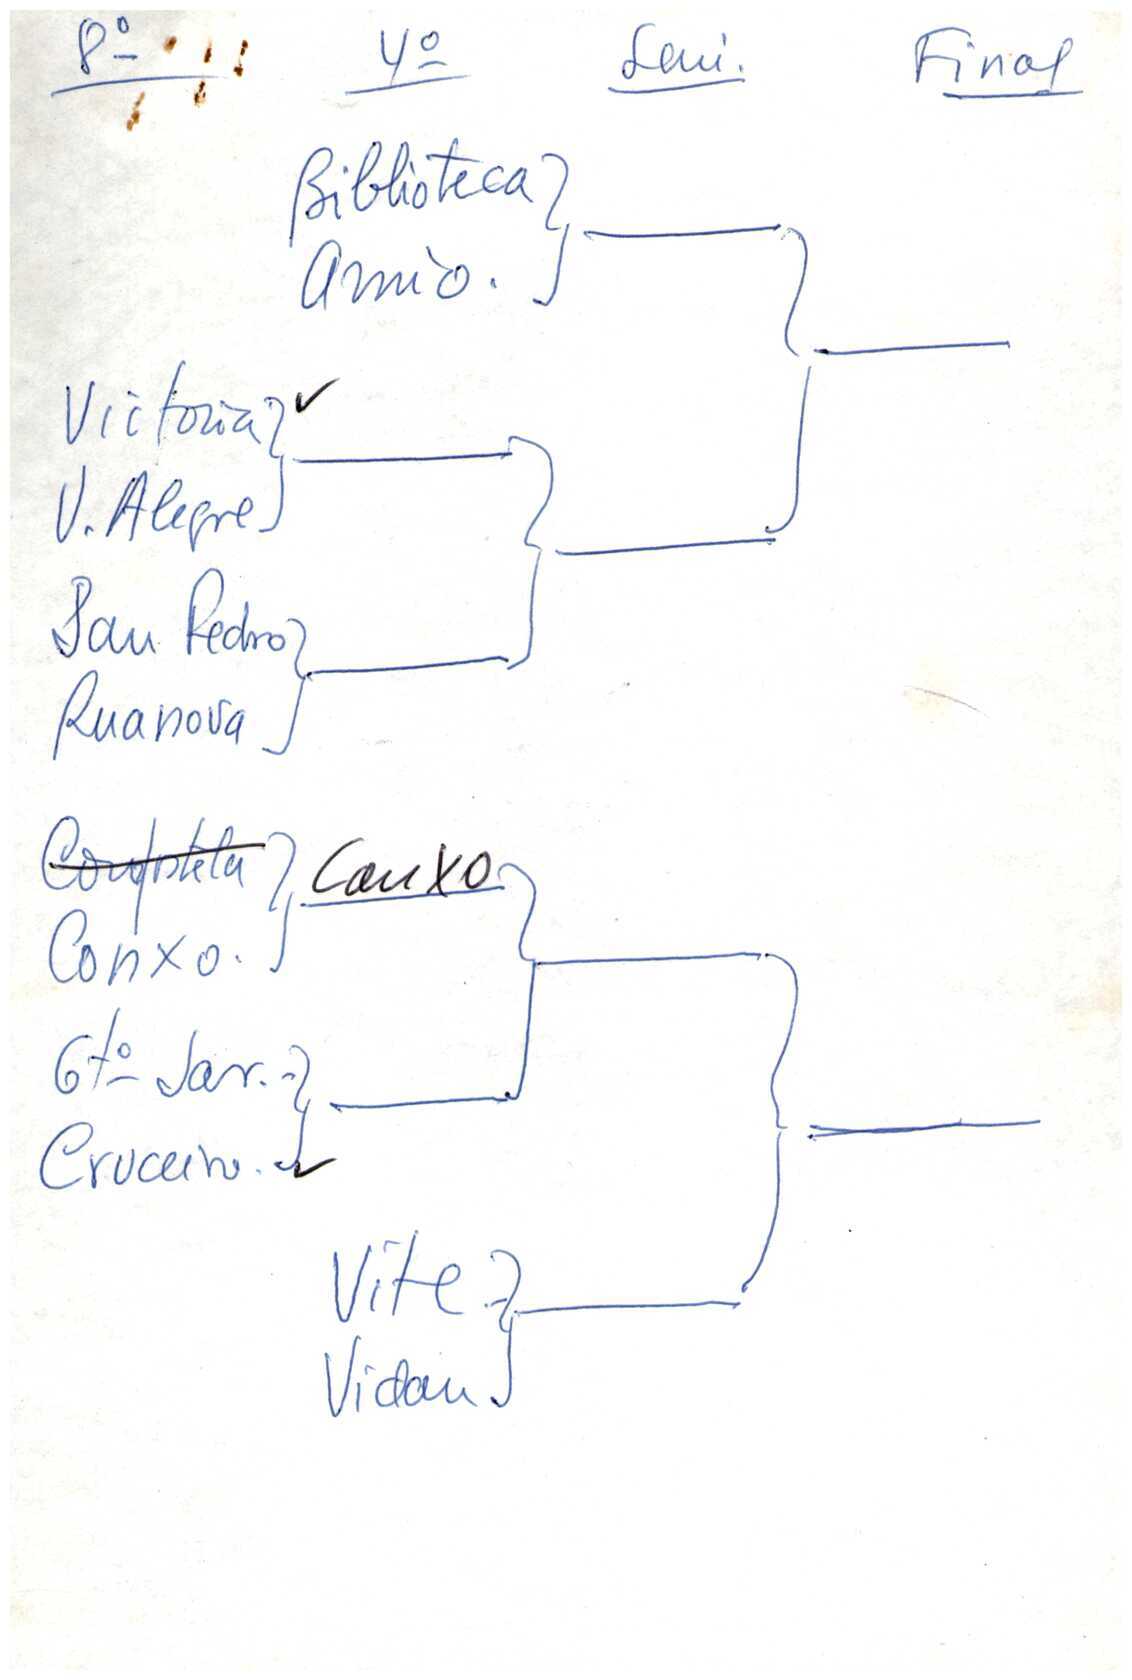 8º 4º Semi. Final
Biblioteca
Amio.
Victoria ✓
V. Alegre
San Pedro
Ruanova
Compostela Conxo
Conxo.
6tº Xar.
Cruceiro. ✓
Vite
Vidan